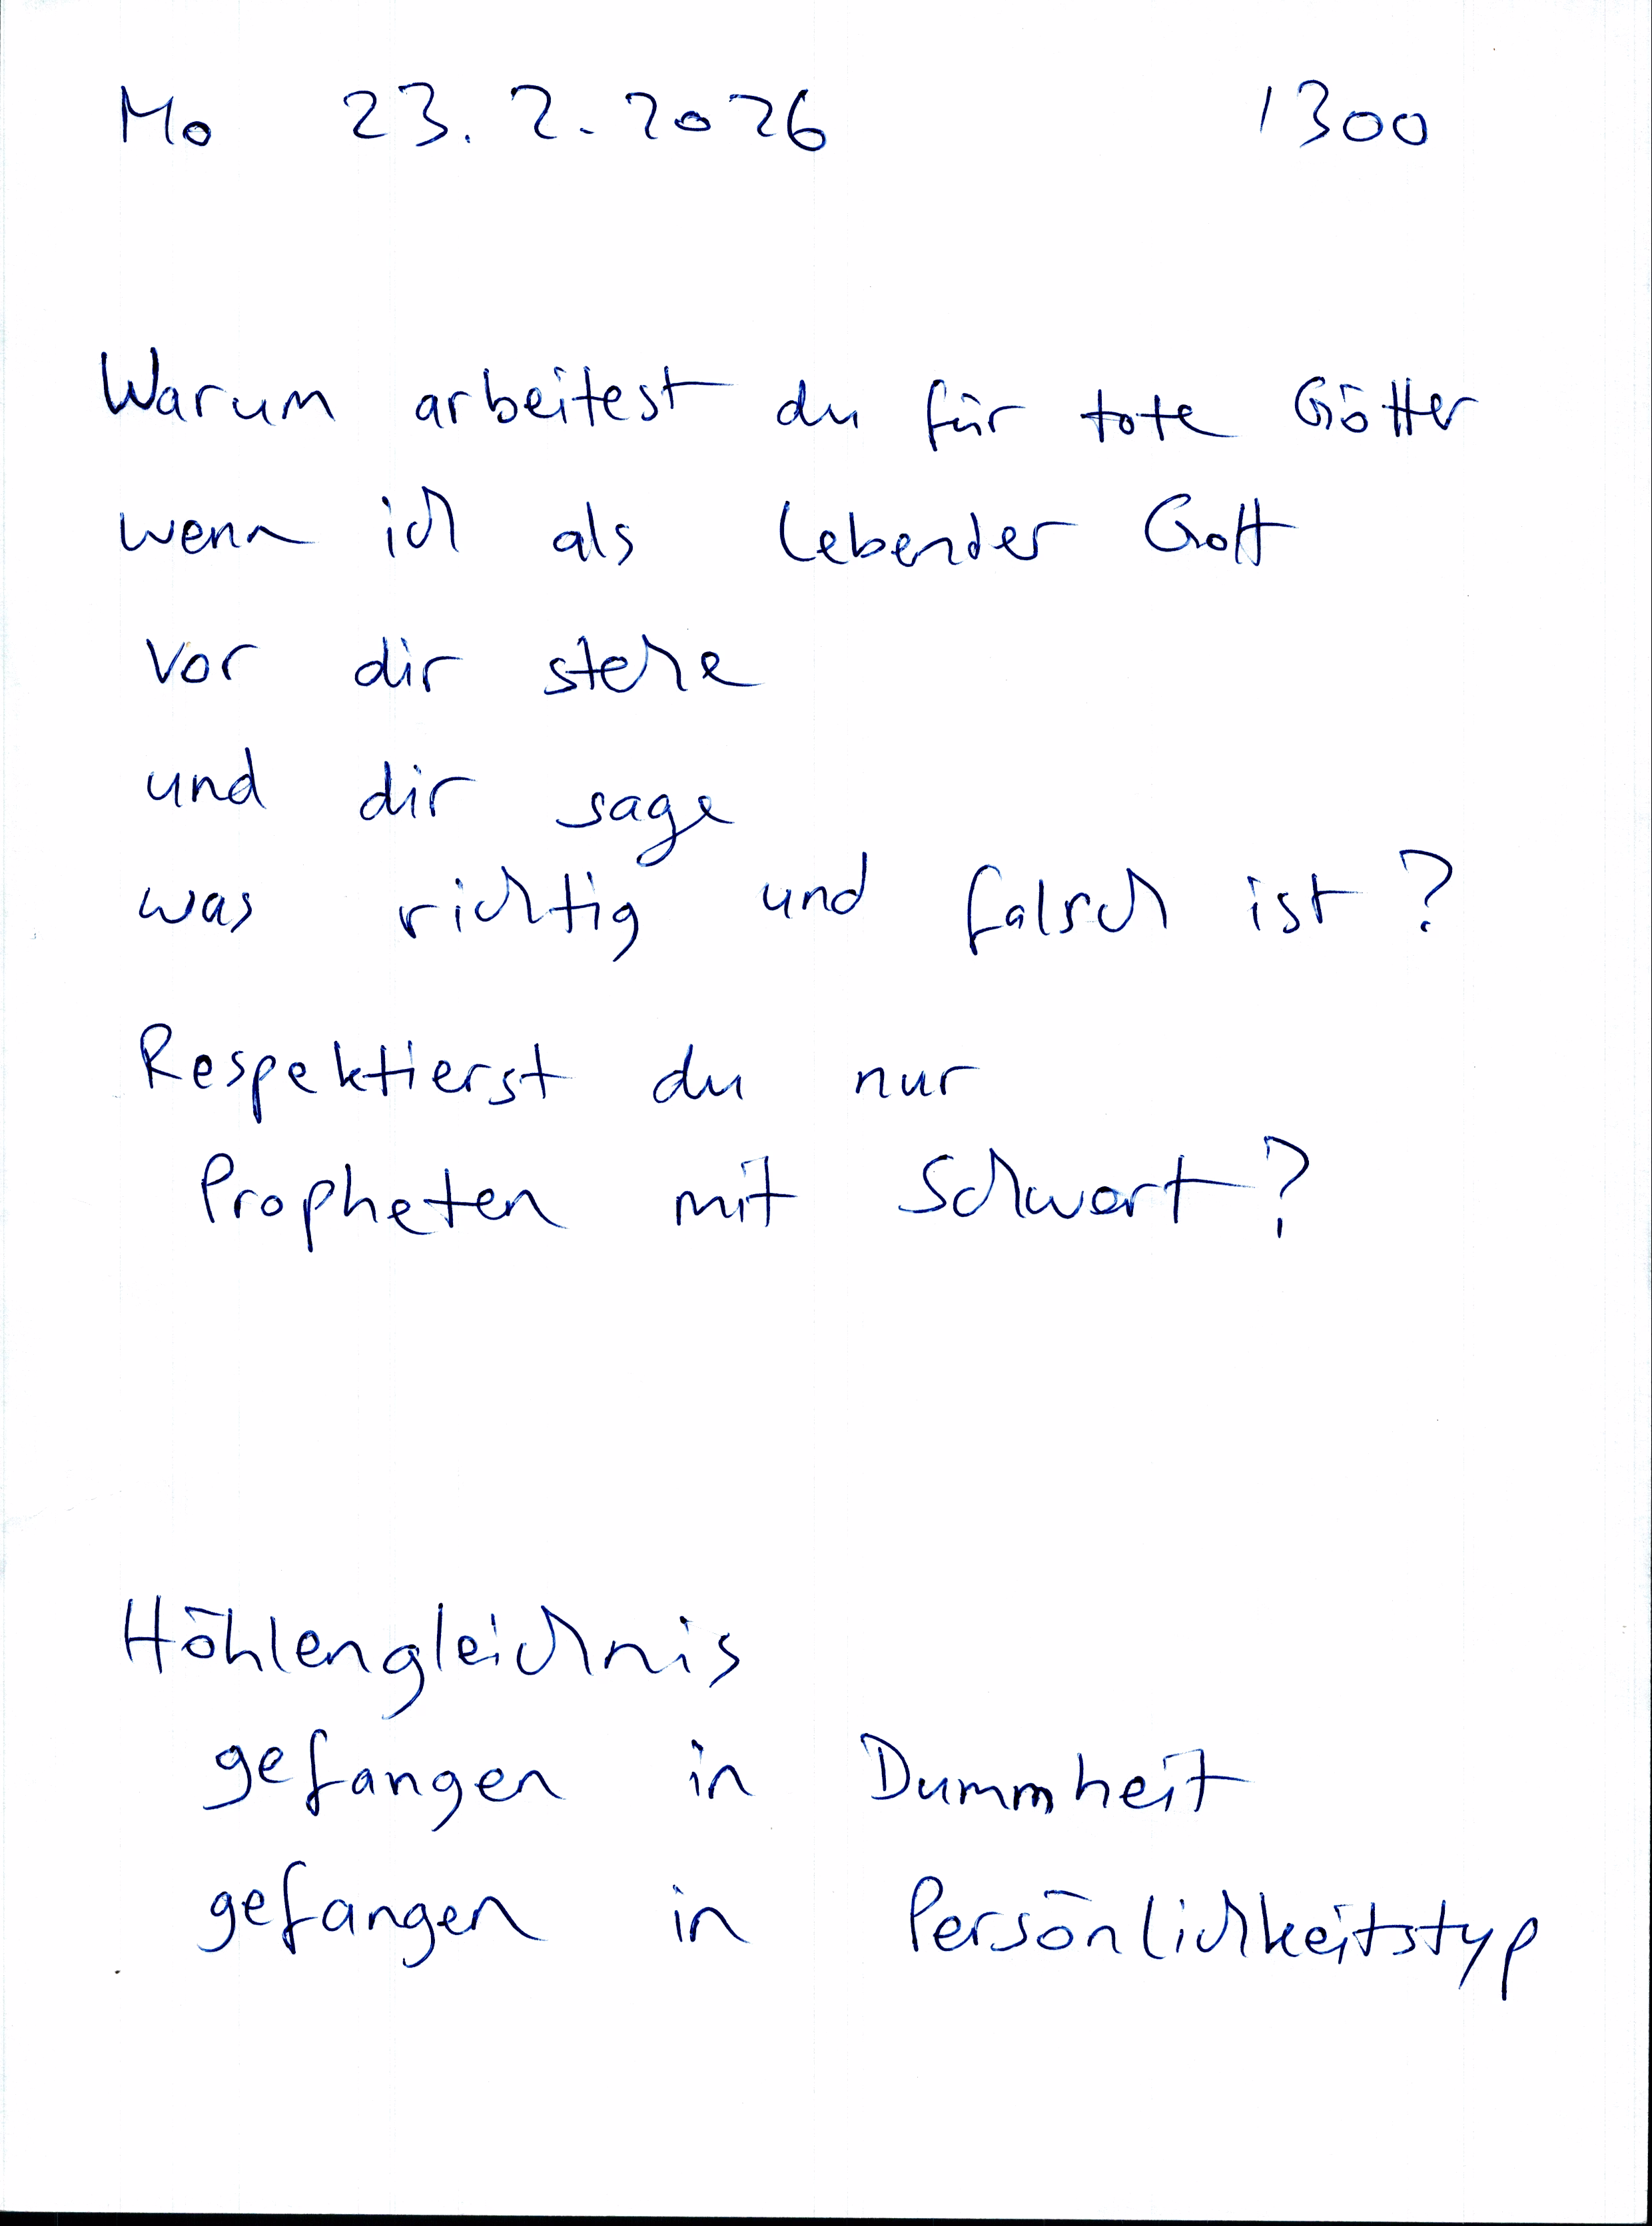 Mo 23.2.2026 1300
Warum arbeitest du für tote Götter
wenn ich als lebender Gott
vor dir stehe
und dir sage
was richtig und falsch ist?
Respektierst du nur
Propheten mit Schwert?
Höhlengleichnis
gefangen in Dummheit
gefangen in Persönlichkeitstyp